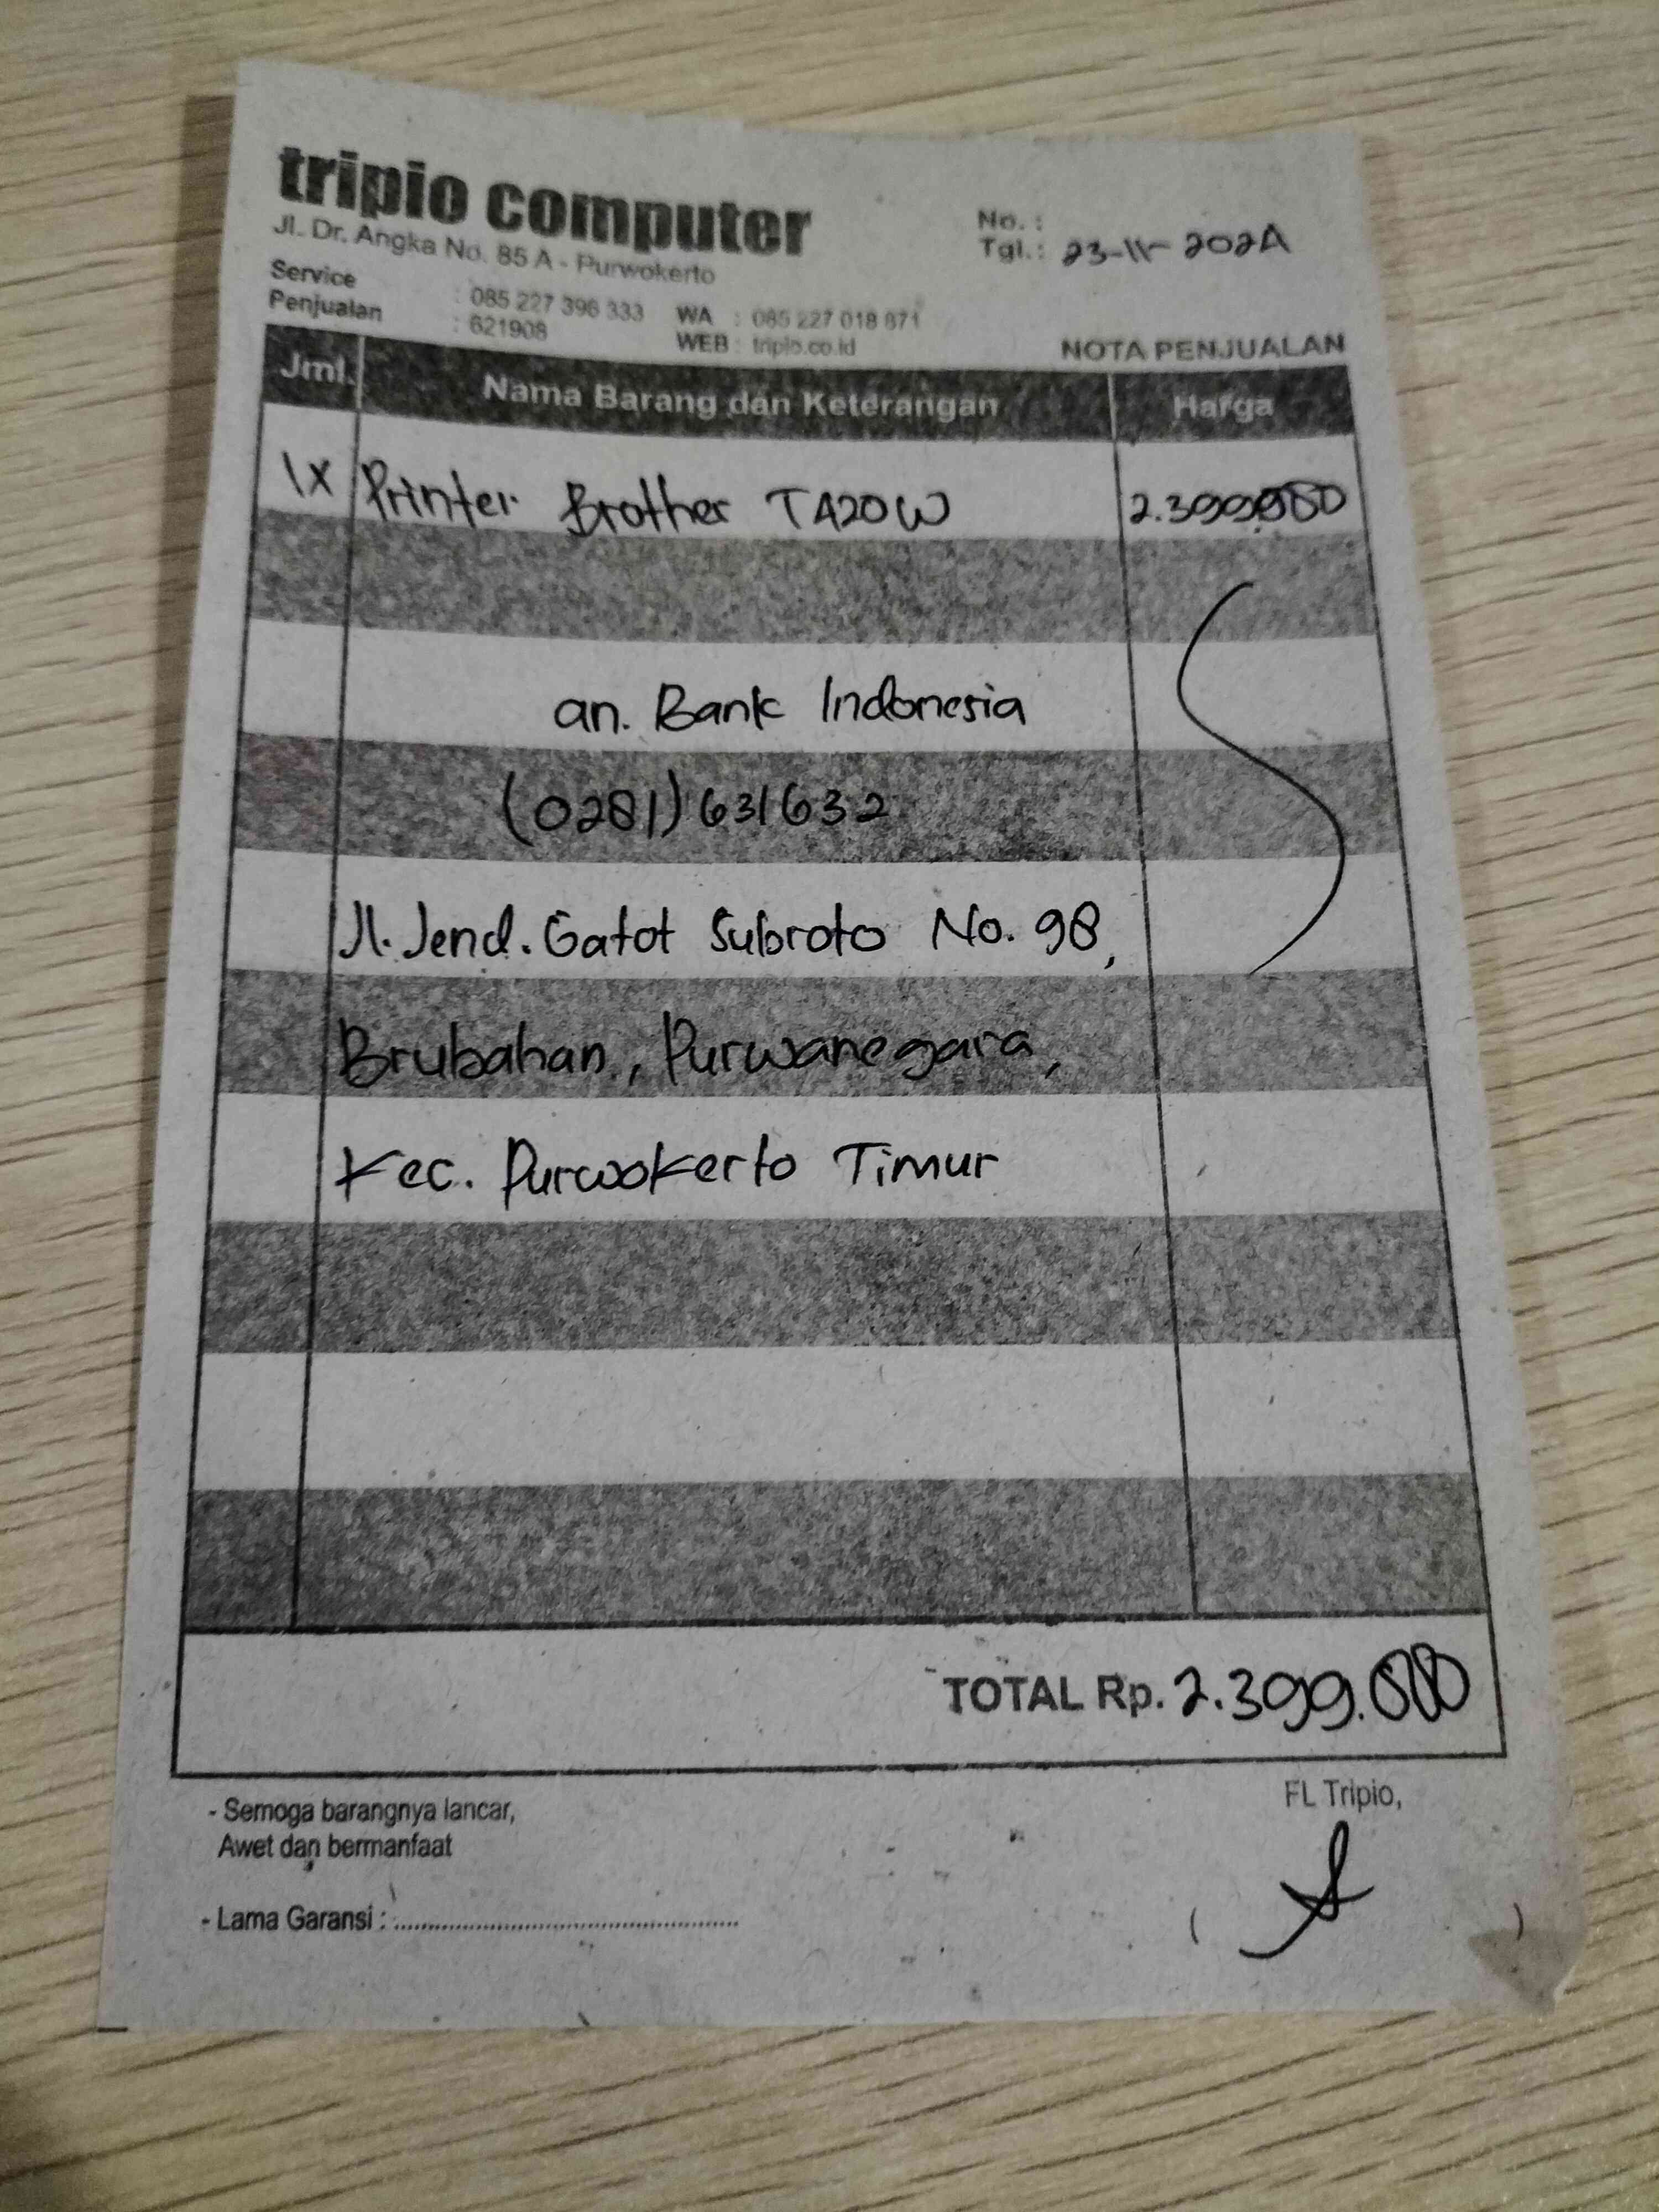 tripio computer
Jl. Dr. Angka No. 85 A - Purwokerto
No. :
Tgl. : 23-11-2024
Service : 085 227 396 333 WA : 085 227 018 871
Penjualan : 621908 WEB : tripio.co.id
NOTA PENJUALAN
Jml. Nama Barang dan Keterangan Harga
1X Printer Brother T420W 2.399.000
an. Bank Indonesia
(0281) 631632
Jl. Jend. Gatot Subroto No. 98,
Brubahan, Purwanegara,
Kec. Purwokerto Timur
TOTAL Rp. 2.399.000
- Semoga barangnya lancar,
Awet dan bermanfaat
- Lama Garansi : ........................................................
FL Tripio,
( )